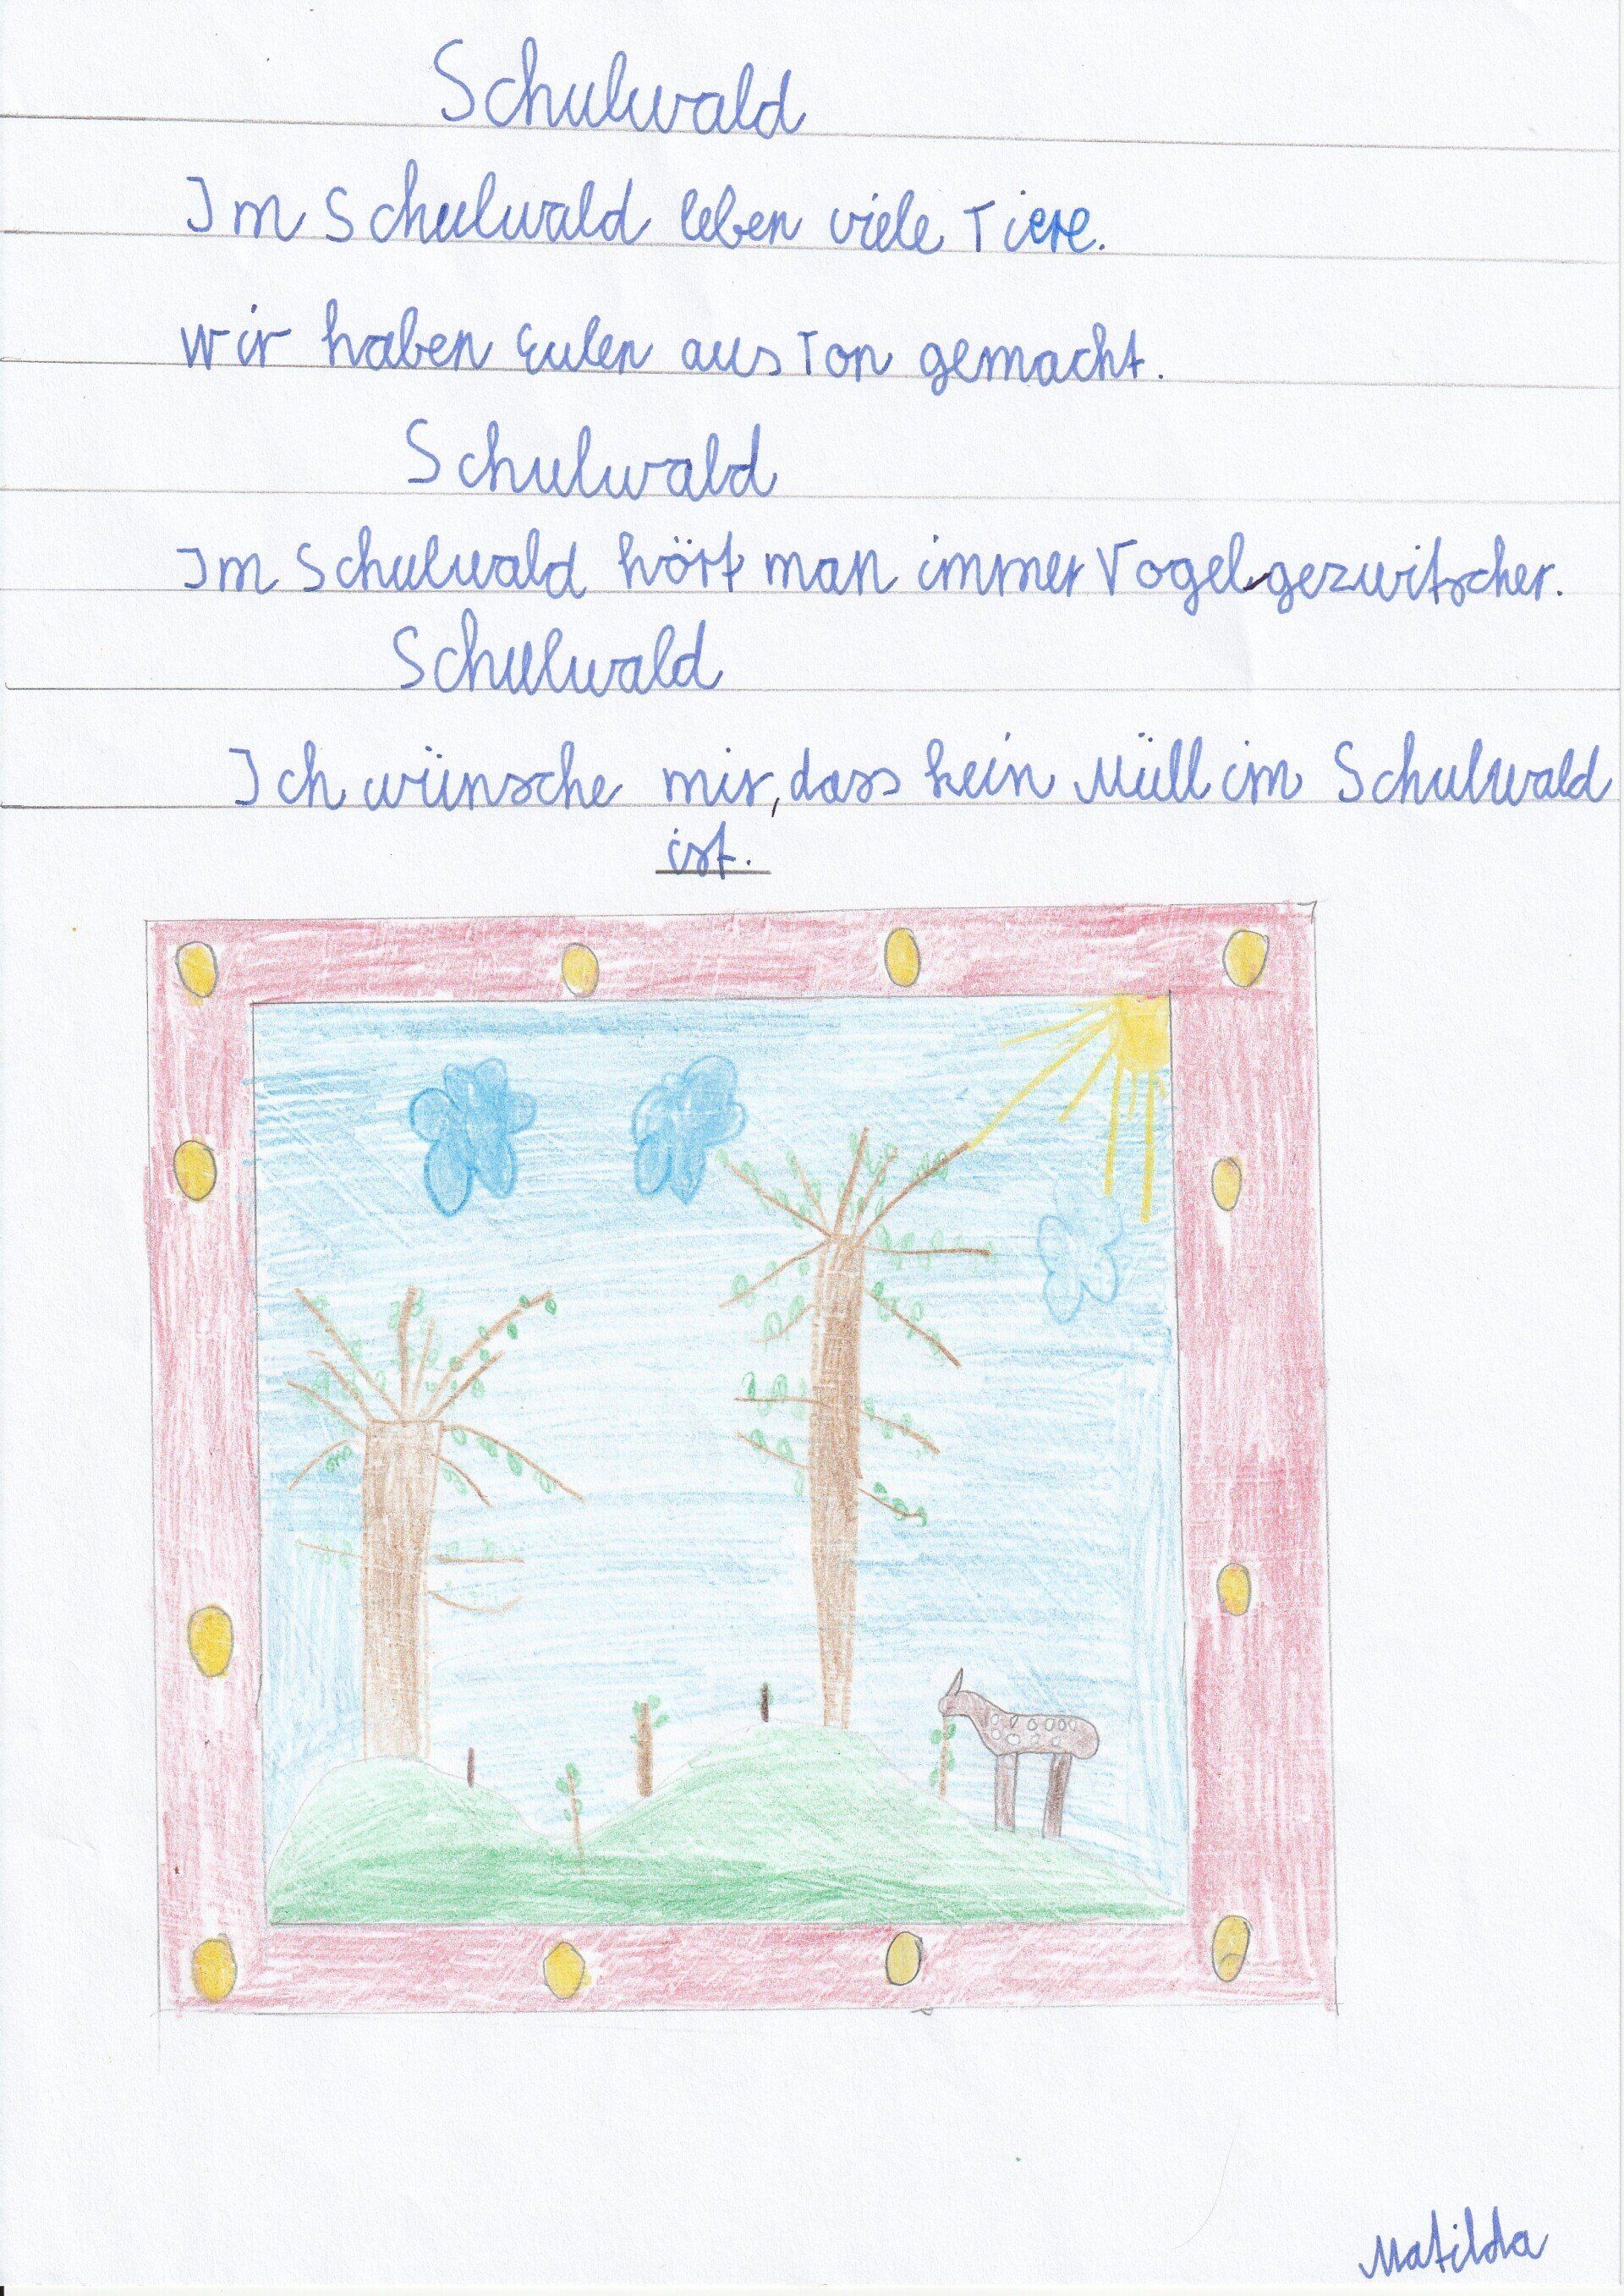 Schulwald
Im Schulwald leben viele Tiere.
wir haben Eulen aus Ton gemacht.
Schulwald
Im Schulwald hört man immer Vogelgezwitscher.
Schulwald
Ich wünsche mir, dass kein Müll im Schulwald
ist.
Matilda